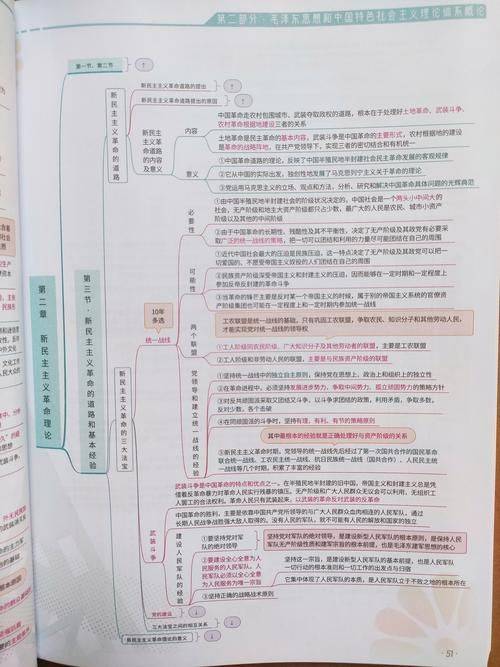 第二部分·毛泽东思想和中国特色社会主义理论体系概论
第一节、第二节
↑
新民主主义革命道路的提出
↓
新民主主义革命道路提出的原因
↑
新民主主义革命的道路
新民主主义革命道路的内容及意义
内容
中国革命走农村包围城市、武装夺取政权的道路，根本在于处理好土地革命、武装斗争、
农村革命根据地建设三者的关系
土地革命是民主革命的基本内容，武装斗争是中国革命的主要形式，农村根据地的建设
是革命的战略阵地，在共产党领导下，实现三者的密切结合和有机统一
意义
①中国革命道路的理论，反映了中国半殖民地半封建社会民主革命发展的客观规律
②它从中国的实际出发，独创性地发展了马克思列宁主义关于革命的理论
③党运用马克思主义的立场、观点和方法，分析、研究和解决中国具体问题的光辉典范
第二章 新民主主义革命理论
第三节·新民主主义革命的道路和基本经验
新民主主义革命的三大法宝
10年
多选
统一战线
必要性
①由中国半殖民地半封建社会的阶级状况决定的。中国社会是一个两头小中间大的
社会，无产阶级和地主大资产阶级都只占少数，最广大的人民是农民、城市小资产
阶级以及其他的中间阶级
②由于中国革命的长期性、残酷性及其不平衡性，决定了无产阶级及其政党有必要采
取广泛的统一战线的策略，把一切可以团结和利用的力量尽可能团结在自己的周围
可能性
①近代中国社会最大的压迫是民族压迫，这一特点决定了无产阶级及其政党可以把一
切爱国的、不愿受帝国主义奴役的人们团结在自己的周围
②民族资产阶级深受帝国主义和封建主义的压迫，因而能够在一定时期和一定程度上
参加反帝反封建的革命斗争
③当革命的锋芒主要是反对某一个帝国主义的时候，属于别的帝国主义系统的官僚资
产阶级集团也可能在一定程度上和一定时期内参加统一战线
两个联盟
工农联盟是统一战线的基础，只有巩固工农联盟，争取农民、知识分子和其他劳动人民，
才能实现党对统一战线的领导权
①工人阶级同农民阶级、广大知识分子及其他劳动者的联盟，主要是工农联盟
②工人阶级和非劳动人民的联盟，主要是与民族资产阶级的联盟
党领导和建立统一战线的经验
①坚持统一战线中的独立自主原则，保持党在思想上、政治上和组织上的独立性
②在革命进程中，必须坚持发展进步势力、争取中间势力、孤立顽固势力的策略方针
③对反共顽固派采取又团结又斗争、以斗争求团结的政策，利用矛盾，争取多数，
反对少数，各个击破
④在同顽固派的斗争时，坚持有理、有利、有节的策略原则
其中最根本的经验就是正确处理好与资产阶级的关系
⑤新民主主义革命时期，党领导的统一战线先后经过了第一次国共合作的国民革命
联合统一战线、工农民主统一战线、抗日民族统一战线（国共合作）、人民民主统
一战线等几个时期，积累了丰富的经验
武装斗争
武装斗争是中国革命的特点和优点之一。在半殖民地半封建的旧中国，帝国主义和封建主义总是凭
借着反革命暴力对革命人民实行残暴的镇压。无产阶级和广大人民群众无议会可以利用，无组织工
人罢工的合法权利。革命人民只有武装起来，以武装的革命反对武装的反革命
中国革命的胜利，主要是依靠中国共产党所领导的与广大人民群众血肉相连的人民军队，通过
长期人民战争战胜强大敌人取得的。没有人民的军队，就不可能有人民的解放和国家的独立
建设人民军队的经验
①要坚持党对军队的绝对领导
坚持党对军队的绝对领导，是建设新型人民军队的根本原则，是保持人民军队无产阶级性质和建军宗旨的根本前提，也是毛泽东建军思想的核心
②要建设全心全意为人民服务的人民军队。人民军队必须以全心全意为人民服务为唯一宗旨
坚持这一宗旨，是建设新型人民军队的基本前提，也是人民军队一切行动的根本准则和一切工作的出发点与归宿
它集中体现了人民军队的本质，是人民军队立于不败之地的根本所在
③坚持正确的战略战术原则
党的建设
↓
三大法宝之间的相互关系
↓
新民主主义革命理论的意义
↓
51